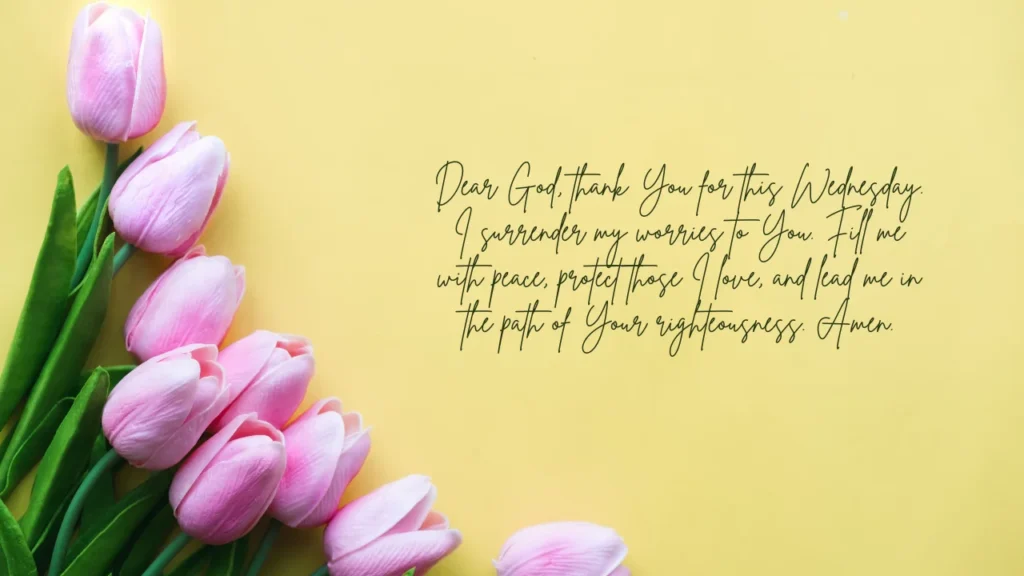 Dear God, thank You for this Wednesday.
I surrender my worries to You. Fill me
with peace, protect those I love, and lead me in
the path of Your righteousness. Amen.